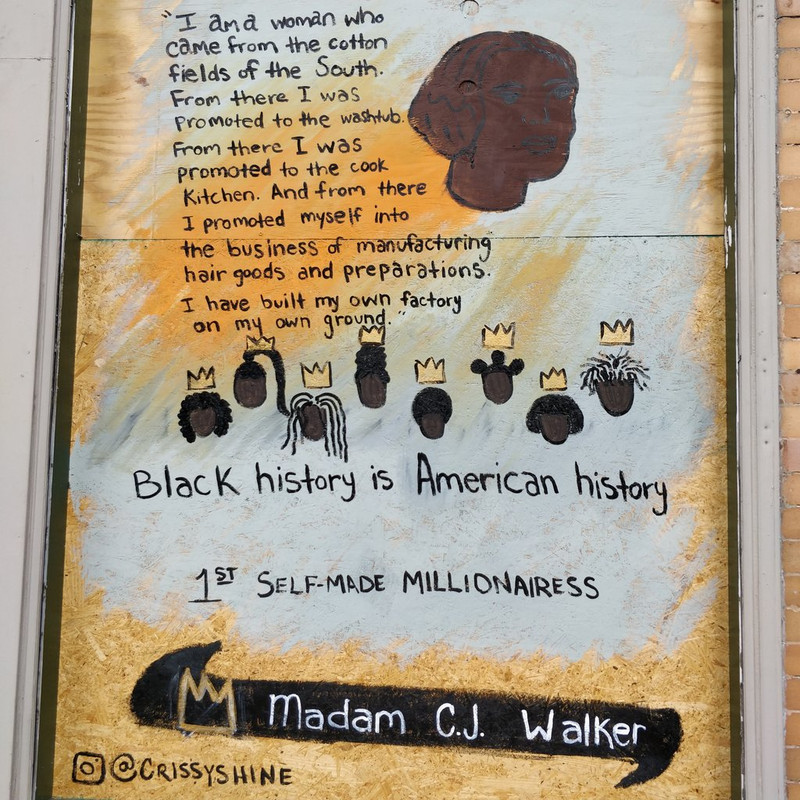 "I am a woman who
came from the cotton
fields of the South.
From there I was
promoted to the washtub.
From there I was
promoted to the cook
Kitchen. And from there
I promoted myself into
the business of manufacturing
hair goods and preparations.
I have built my own factory
on my own ground."
Black history is American history
1ST SELF-MADE MILLIONAIRESS
Madam C.J. Walker
@CRISSYSHINE